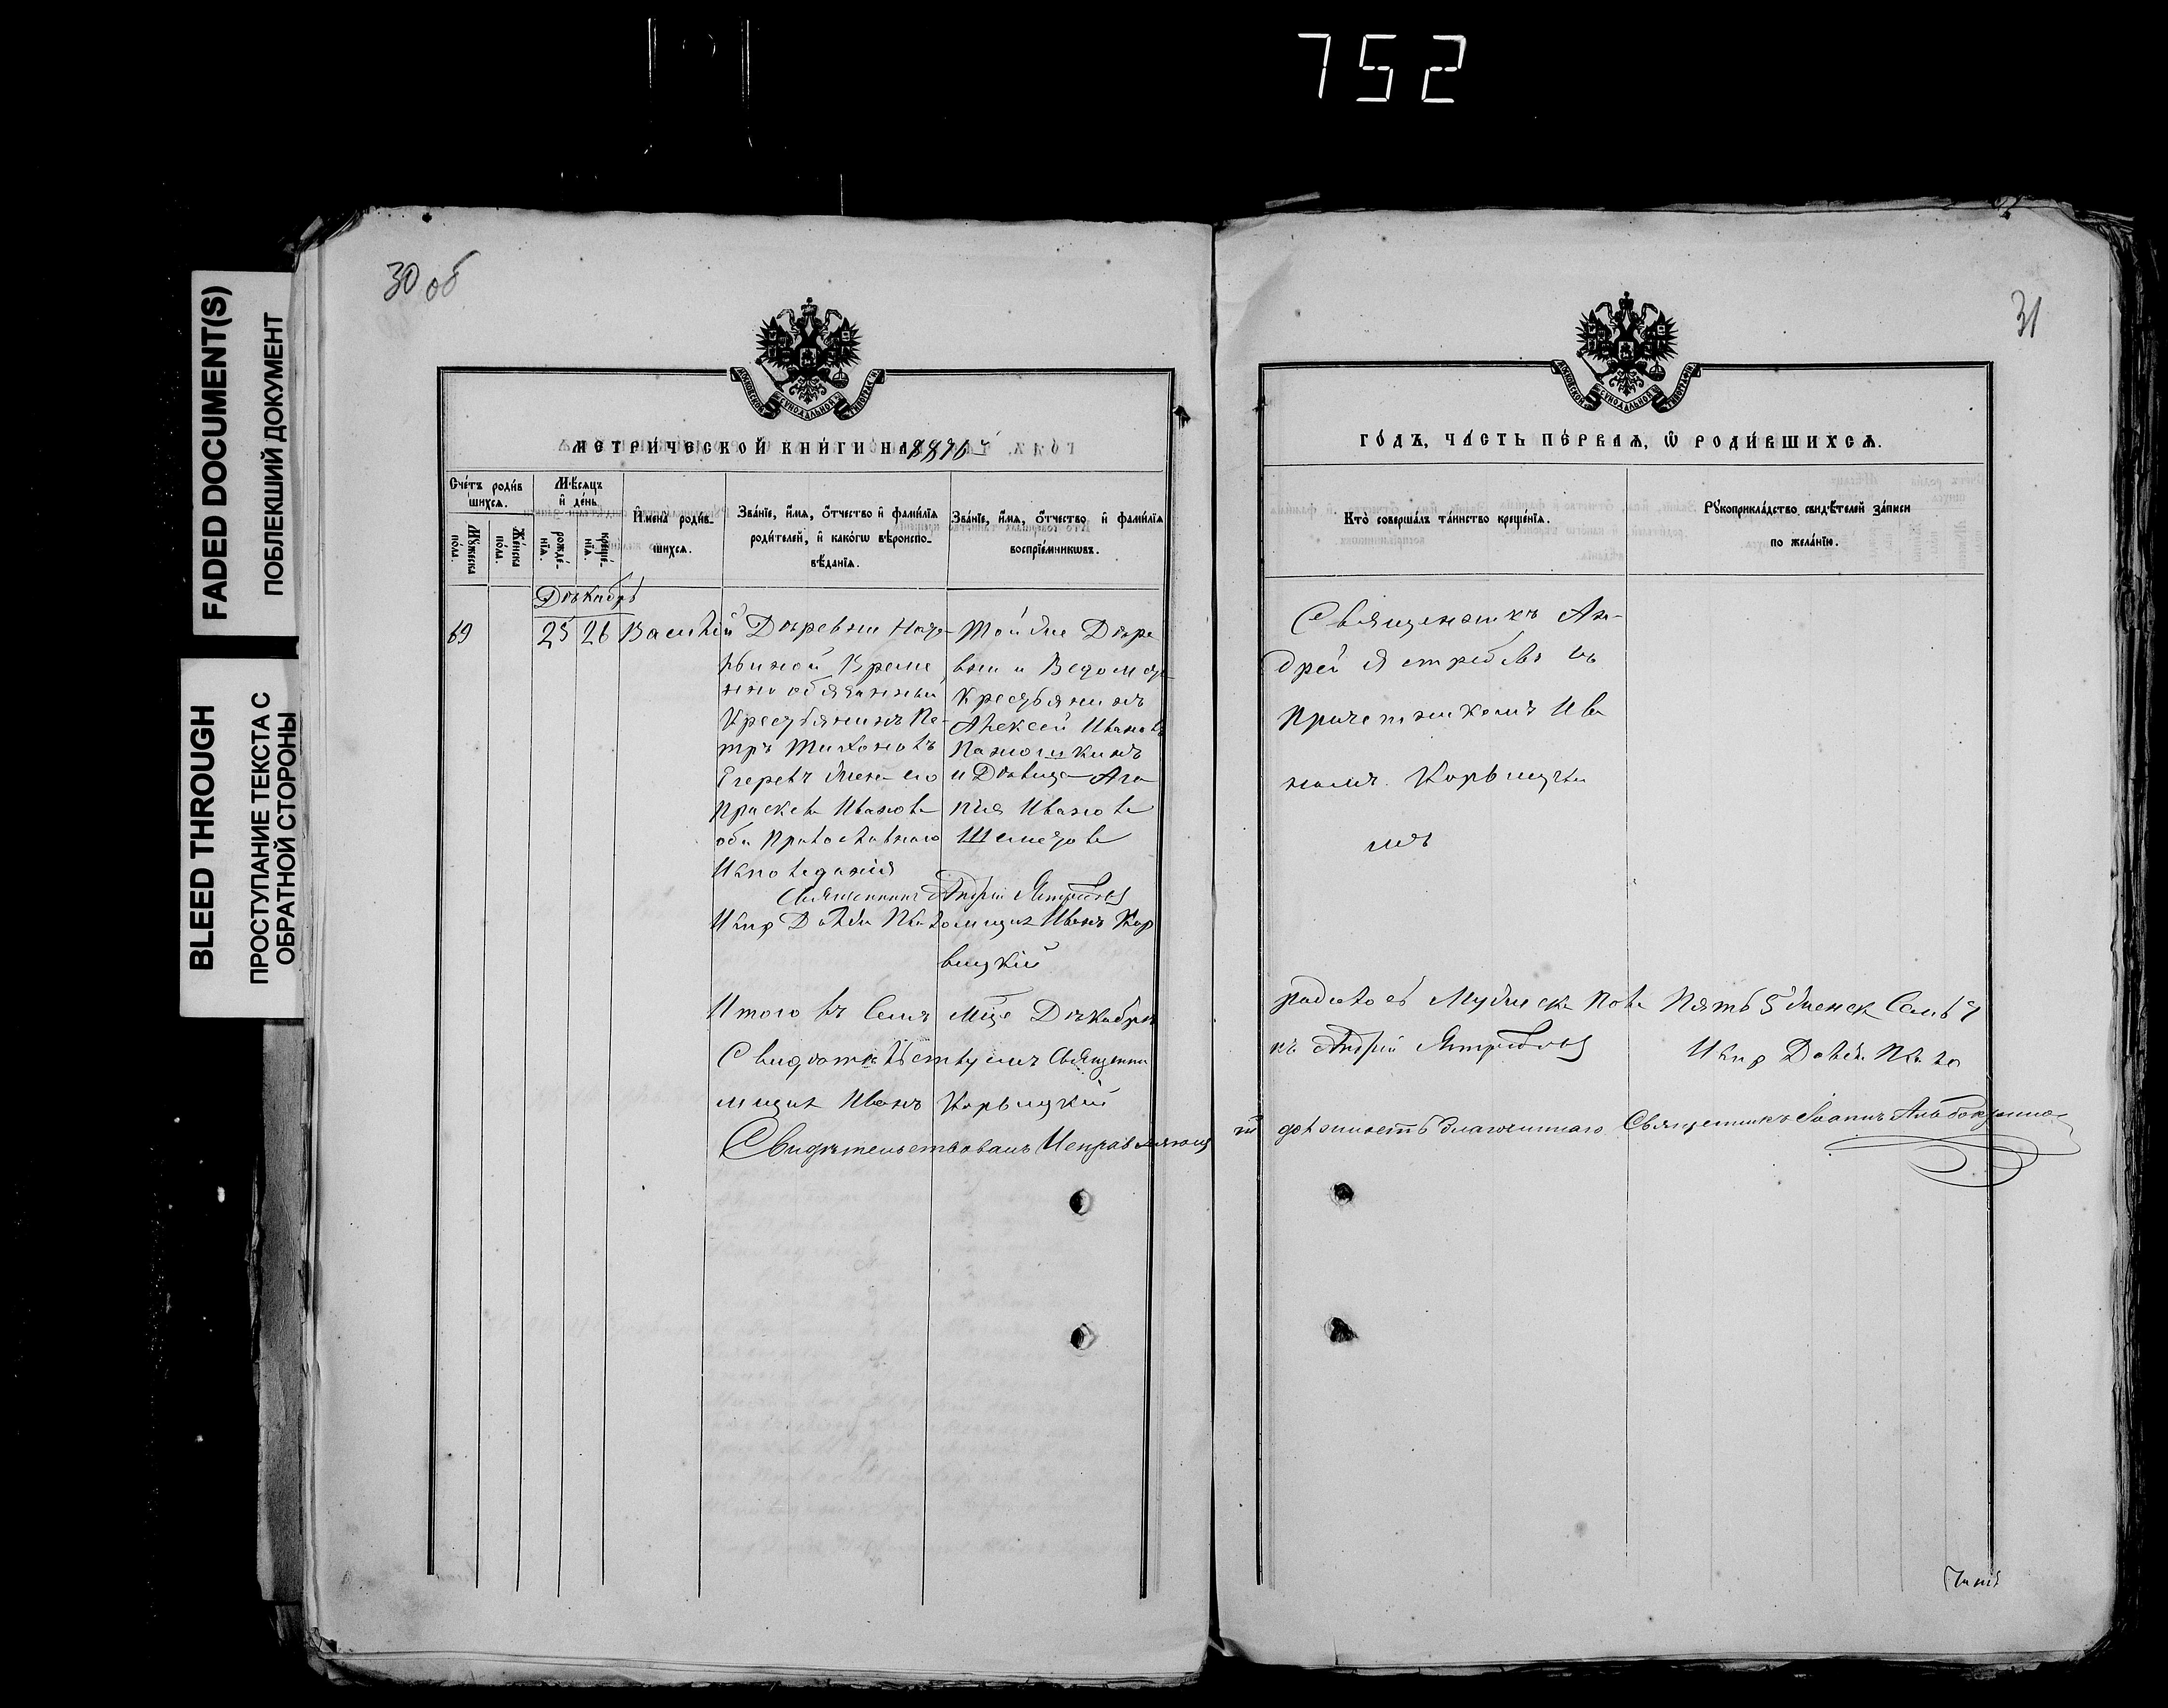 752
FADED DOCUMENT(S)
ПОБЛЕКШИЙ ДОКУМЕНТ
BLEED THROUGH
ПРОСТУПАНИЕ ТЕКСТА С
ОБРАТНОЙ СТОРОНЫ
30 об
МЕТРИ́ЧЕСКОЙ КНИ́ГИ НА 1870
Сче́тъ роди́в
шихсѧ.
Мꙋ́жеска по́ла.
Же́нска по́ла.
Мѣ́сѧцъ
и҆ де́нь
рожде́нїѧ.
креще́нїѧ.
И҆мена̀ роди́в-
шихсѧ.
Зва́нїе, и҆́мѧ, ѻ҆́тчество и҆ фамѝлїѧ
роди́телей, и҆ како́гѡ вѣроиспо-
вѣ́данїѧ.
Зва́нїе, и҆́мѧ, ѻ҆́тчество и҆ фамѝлїѧ
воспрїе́мникѡвъ.
Декабрь
69
25 26 Василій
Деревни
Крестьянинъ Пе-
тръ Тихоновъ
жена его
Праскева Иванова
оба Православнаго
Исповеданія
Той же Дере
вни и Ведомст
Крестьянинъ
Алексей Ивановъ
Панюшкинъ
и Девица Ага
пия Иванова
Шеметова
Священникъ Андрей Ястребовъ
Испр Долж Псаломщика Иванъ Кор
вицкій
Итого въ Семъ мце Декабре
Свидетельствуемъ Священни
мщика Иванъ Корвицкій
Свидѣтельствовалъ Исправляющ
31
ГО́ДЪ, ЧА́СТЬ ПЕ́РВАѦ, Ѽ РОДИ́ВШИХСѦ.
Кто̀ соверша́лъ та́инство креще́нїѧ.
Рꙋкоприкла́дство свидѣ́телей за́писи
по жела́нїю.
Священникъ Ан-
дрей Ястребовъ съ
Причетникомъ Ива
номъ Корвицки
мъ
родилось Мужеска пола Пять 5 женск Семь 7
къ Андрей Ястребовъ Испр Долж Псало
й должность благочиннаго Священникъ Іоаннъ